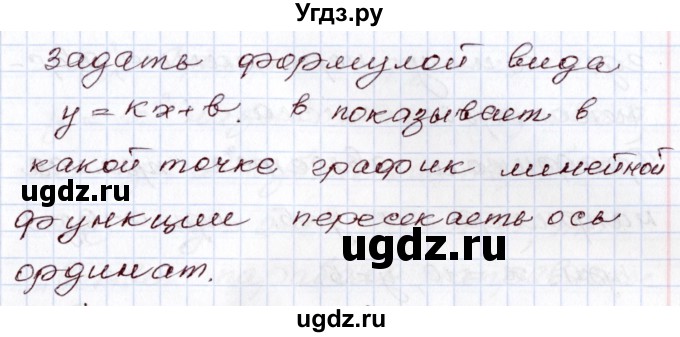 Угдз.ру
задать формулой вида
y = kx + b. b показывает в
какой точке график линейной
ugdz.ru
функции пересекаеть ось
ugdz.ru
ординат.
ugdz.ru